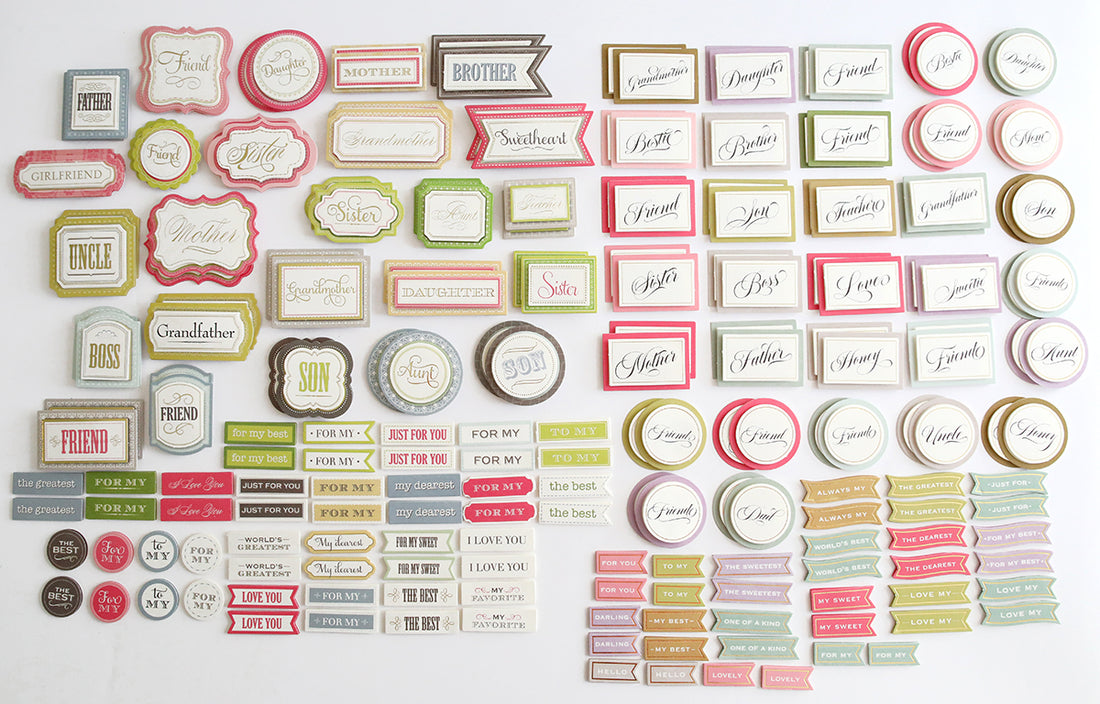 Friend
Daughter
MOTHER
BROTHER
FATHER
Friend
Sister
Grandmother
Sweetheart
GIRLFRIEND
Sister
Aunt
Teacher
UNCLE
Mother
Grandmother
DAUGHTER
Sister
BOSS
Grandfather
SON
Aunt
SON
FRIEND
FRIEND
for my best
· FOR MY ·
JUST FOR YOU
FOR MY
TO MY
for my best
· FOR MY ·
JUST FOR YOU
FOR MY
TO MY
the greatest
FOR MY
I Love You
JUST FOR YOU
FOR MY
my dearest
FOR MY
the best
the greatest
FOR MY
I Love You
JUST FOR YOU
FOR MY
my dearest
FOR MY
the best
THE BEST
For MY
to MY
FOR MY
WORLD'S GREATEST
My dearest
FOR MY SWEET
I LOVE YOU
WORLD'S GREATEST
My dearest
FOR MY SWEET
I LOVE YOU
THE BEST
For MY
to MY
FOR MY
LOVE YOU
FOR MY
THE BEST
MY FAVORITE
LOVE YOU
FOR MY
THE BEST
MY FAVORITE
Grandmother
Daughter
Friend
Bestie
Daughter
Bestie
Brother
Friend
Friend
Mom
Friend
Son
Teacher
Grandfather
Son
Sister
Boss
Love
Sweetie
Friends
Mother
Father
Honey
Friends
Aunt
Friends
Friend
Friends
Uncle
Honey
Friends
Dad
ALWAYS MY
THE GREATEST
·JUST FOR·
ALWAYS MY
THE GREATEST
·JUST FOR·
WORLD'S BEST
THE DEAREST
·FOR MY BEST·
WORLD'S BEST
THE DEAREST
·FOR MY BEST·
FOR YOU
TO MY
THE SWEETEST
MY SWEET
LOVE MY
LOVE MY
FOR YOU
TO MY
THE SWEETEST
MY SWEET
LOVE MY
LOVE MY
DARLING
·MY BEST·
ONE OF A KIND
DARLING
·MY BEST·
ONE OF A KIND
FOR MY
FOR MY
HELLO
HELLO
LOVELY
LOVELY